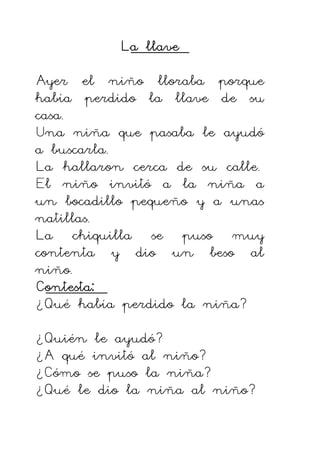 La llave
Ayer el niño lloraba porque
había perdido la llave de su
casa.
Una niña que pasaba le ayudó
a buscarla.
La hallaron cerca de su calle.
El niño invitó a la niña a
un bocadillo pequeño y a unas
natillas.
La chiquilla se puso muy
contenta y dio un beso al
niño.
Contesta:
¿Qué había perdido la niña?
¿Quién le ayudó?
¿A qué invitó al niño?
¿Cómo se puso la niña?
¿Qué le dio la niña al niño?